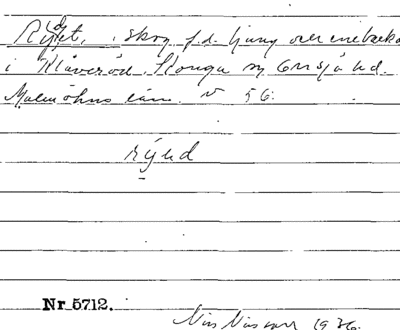 Rydet, i skog f.d. ljung o. enebacka
i Klåveröd, Konga sn Onsjö hd.
Malmöhus län. N 56.
rýhd
Nr 5712.
Nils Nilsson 1936.